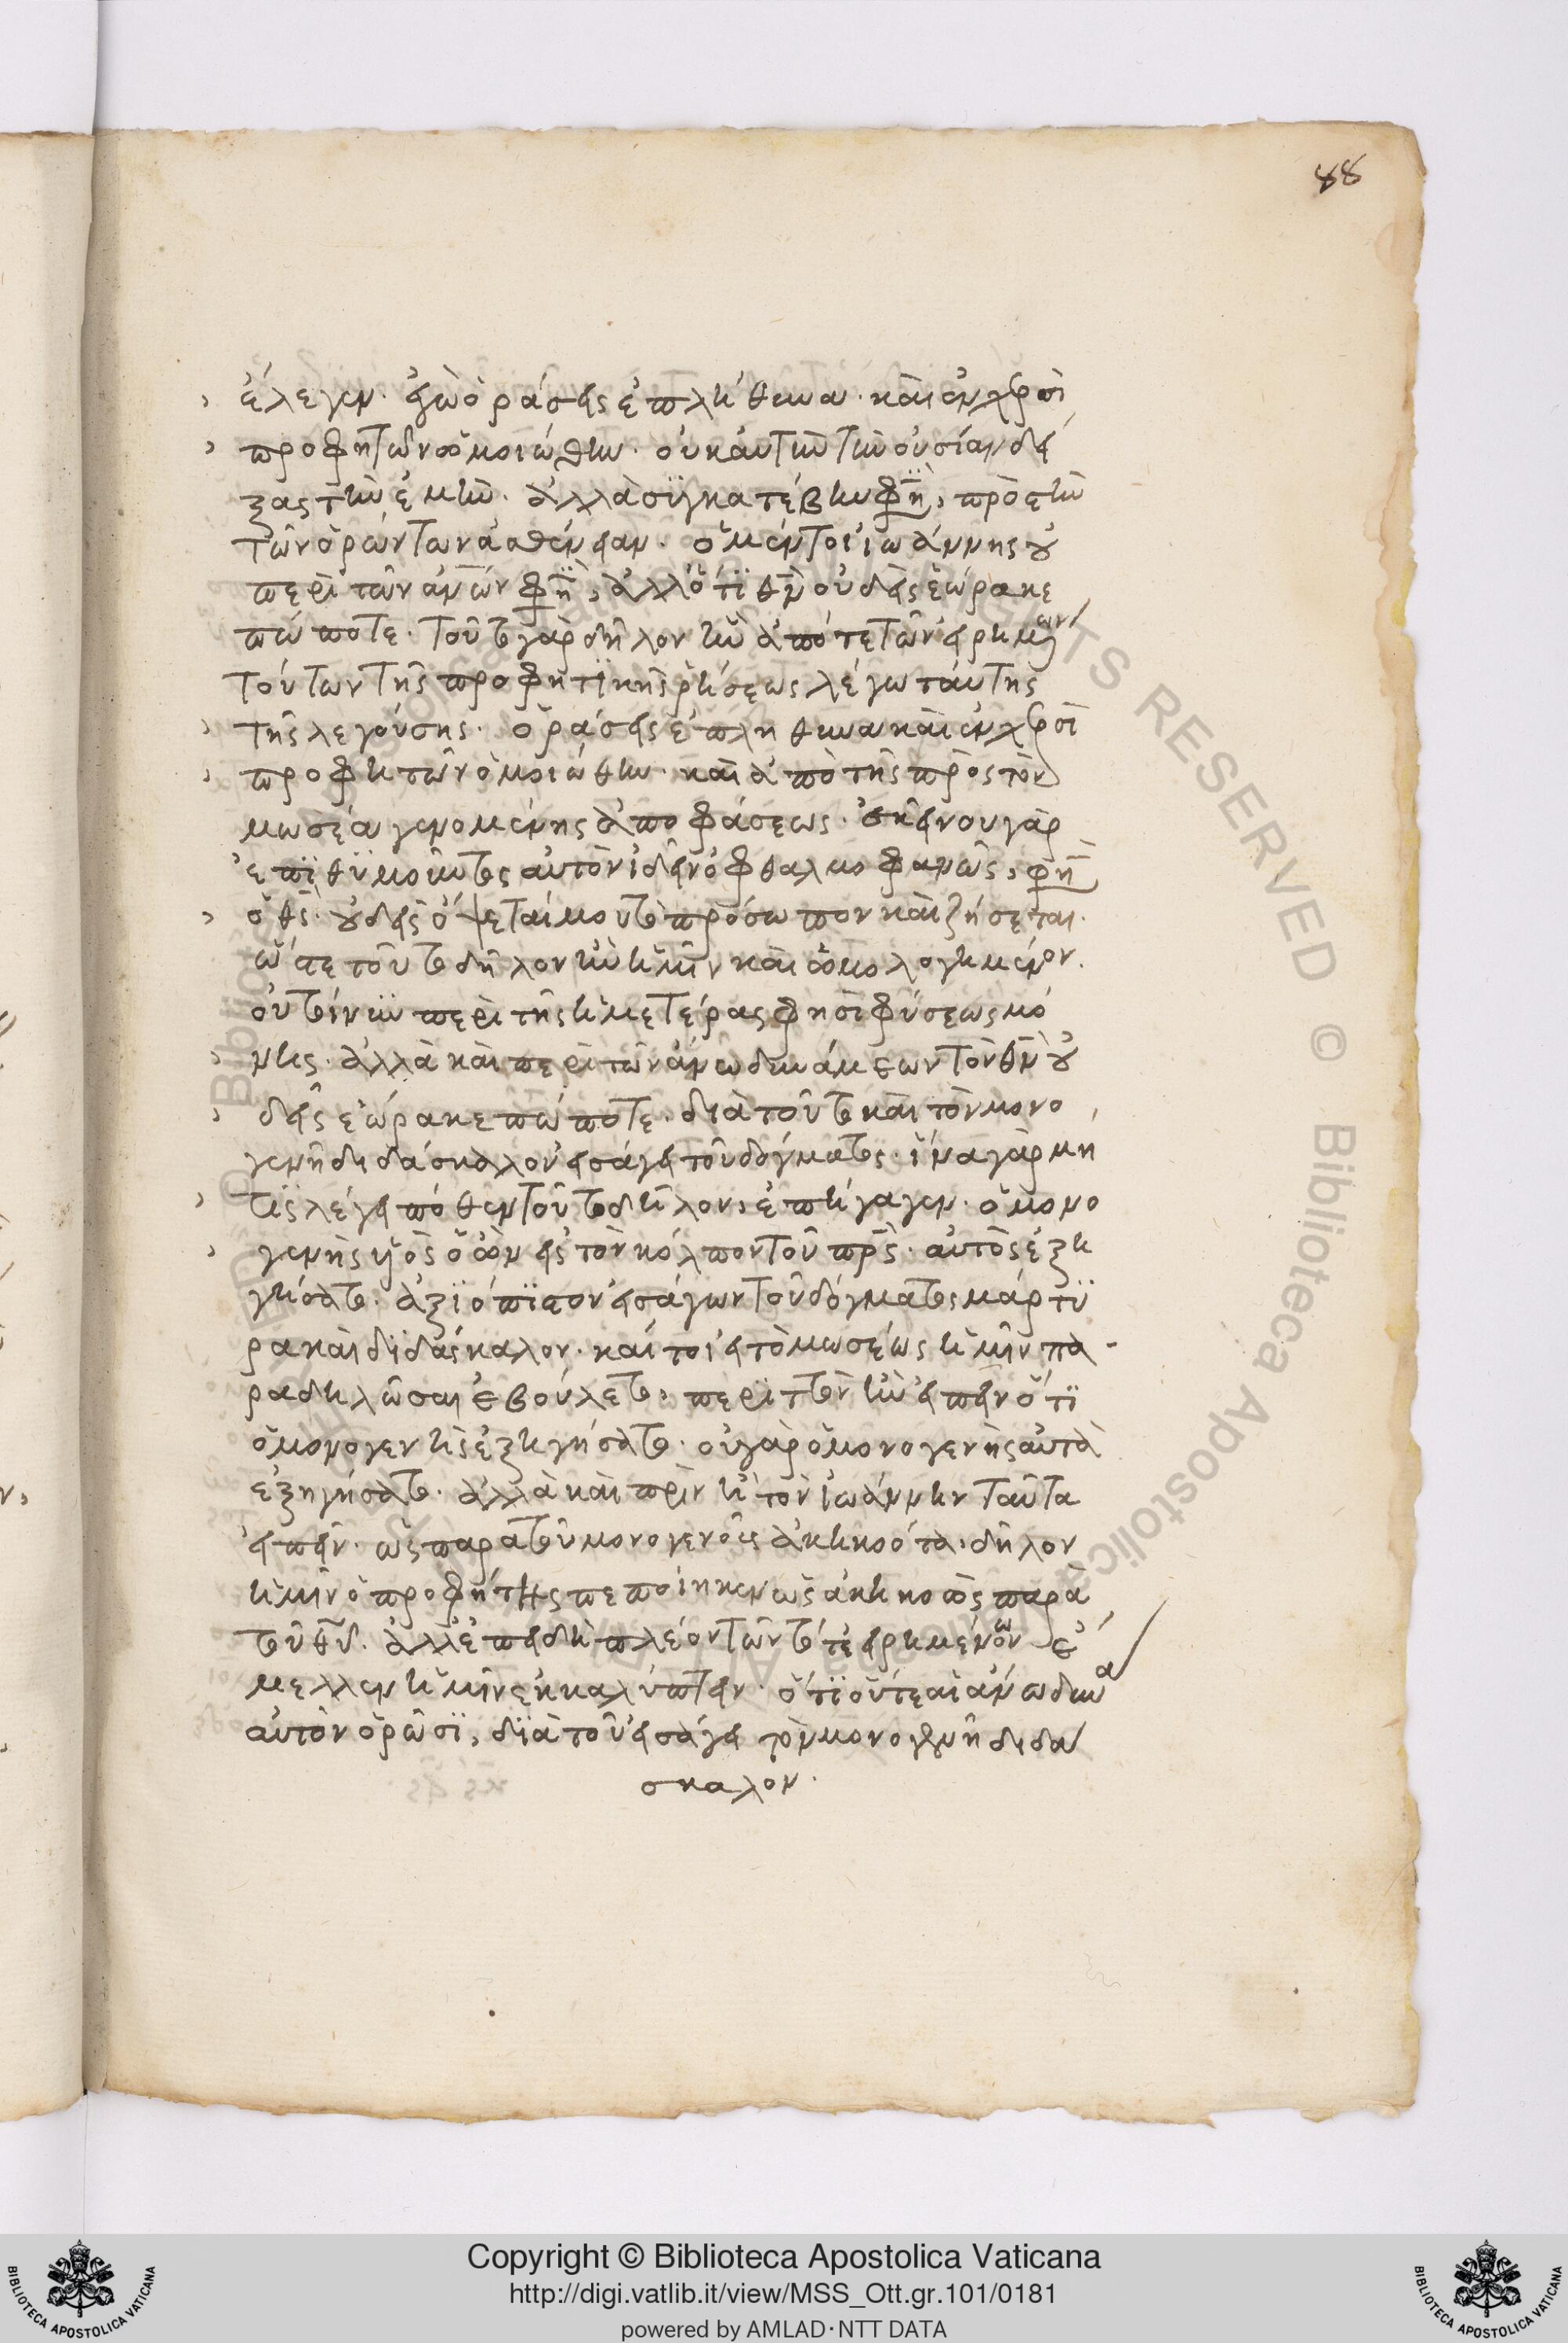 88
ἔλεγεν· ἐγὼ ὁράσεις ἐπλήθυνα· καὶ ἐν χερσὶ
προφητῶν ὡμοιώθην· οὐκ αὐτὴν τὴν οὐσίαν δεί
ξας τὴν ἐμὴν. ἀλλὰ συγκατέβην φη̄, πρὸς τὴν
τῶν ὁρώντων ἀσθένειαν. ὁ μέντοι ἰωάννης οὐ
περὶ τῶν ανῶν φη̄, ἀλλ' ὅτι θν̄ οὐδεὶς ἑώρακε
πώποτε. τοῦτο γὰρ δῆλον ἦν ἀπό τε τῶν εἰρημένων
τούτων τῆς προφητικῆς ῥήσεως λέγω ταύτης
τῆς λεγούσης· ὁράσεις ἐπλήθυνα καὶ ἐν χερσὶ
προφητῶν ὁμοιώθην· καὶ ἀπὸ τῆς πρὸς τὸν
μωσέα γενομένης ἀποφάσεως. ἐκείνου γὰρ
ἐπιθυμοῦντος αὐτὸν ἰδεῖν ὀφθαλμοφανῶς, φη̄
ὁ θς̄· οὐδεὶς ὄψεταί μου τὸ πρόσωπον καὶ ζήσεται.
ὥστε τοῦτο δῆλον ἦν ἡμῖν καὶ ὡμολογημένον.
οὐ τοίνυν περὶ τῆς ἡμετέρας φησὶ φύσεως μό
νης· ἀλλὰ καὶ περὶ τῶν ἄνω δυνάμεων τὸν θν̄ οὐ
δεὶς ἑώρακε πώποτε. διὰ τοῦτο καὶ τὸν μονο
γενῆ διδάσκαλον εἰσάγει τοῦ δόγματος. ἵνα γὰρ μή
τις λέγει πόθεν τοῦτο δῆλον, ἐπήγαγεν· ὁ μονο
γενὴς υἱὸς ὁ ὢν εἰς τὸν κόλπον τοῦ πρς̄. αὐτὸς ἐξη
γήσατο. ἀξιόπιστον εἰσάγων τοῦ δόγματος μάρτυ
ρα καὶ διδάσκαλον. καίτοι εἰ τὸ μωσέως ἡμῖν πα
ραδηλῶσαι ἐβούλετο. περιττὸν ἦν εἰπεῖν ὅτι
ὁ μονογενὴς ἐξηγήσατο. οὐ γὰρ ὁ μονογενὴς αὐτὰ
ἐξηγήσατο. ἀλλὰ καὶ πρὶν ἢ τὸν ἰωάννην ταῦτα
εἰπεῖν. ὡς παρὰ τοῦ μονογενοῦς ἀκηκοότα. δῆλον
ἡμῖν ὁ προφήτης πεποίηκεν ὡς ἀκηκοὼς παρὰ
τοῦ θῦ. ἀλλ' ἐπειδὴ πλέον τῶν τότε εἰρημένων ἔ
μελλεν ἡμῖν ἐκκαλύπτειν. ὅτι οὔτε αἱ ἄνω δυνα
αὐτὸν ὁρῶσι, διὰ τοῦ εἰσάγει τὸν μονογενῆ διδα
σκαλον.
Copyright © Biblioteca Apostolica Vaticana
http://digi.vatlib.it/view/MSS_Ott.gr.101/0181
powered by AMLAD·NTT DATA